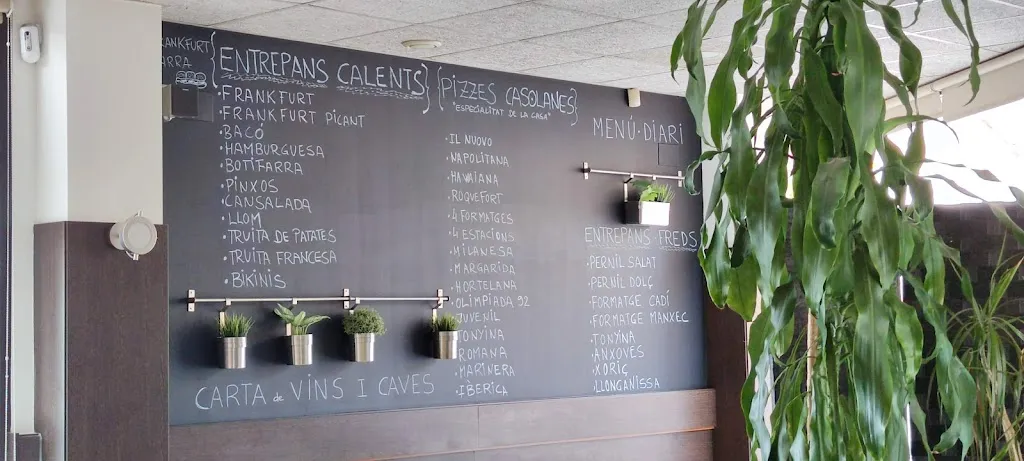 FRANKFURT
ARRA
ENTREPANS CALENTS
·FRANKFURT
·FRANKFURT PICANT
·BACÓ
·HAMBURGUESA
·BOTIFARRA
·PINXOS
·CANSALADA
·LLOM
·TRUITA DE PATATES
·TRUITA FRANCESA
·BIKINIS
CARTA de VINS I CAVES
PIZZES CASOLANES
"ESPECIALITAT DE LA CASA"
·IL NUOVO
·NAPOLITANA
·HAVAIANA
·ROQUEFORT
·4 FORMATGES
·4 ESTACIONS
·MILANESA
·MARGARIDA
·HORTELANA
·OLIMPÍADA 92
·JUVENIL
·TONYINA
·ROMANA
·MARINERA
·IBÈRICA
MENÚ·DIARI
ENTREPANS·FREDS
·PERNIL SALAT
·PERNIL DOLÇ
·FORMATGE CADÍ
·FORMATGE MANXEC
·TONYINA
·ANXOVES
·XORIÇ
·LLONGANISSA